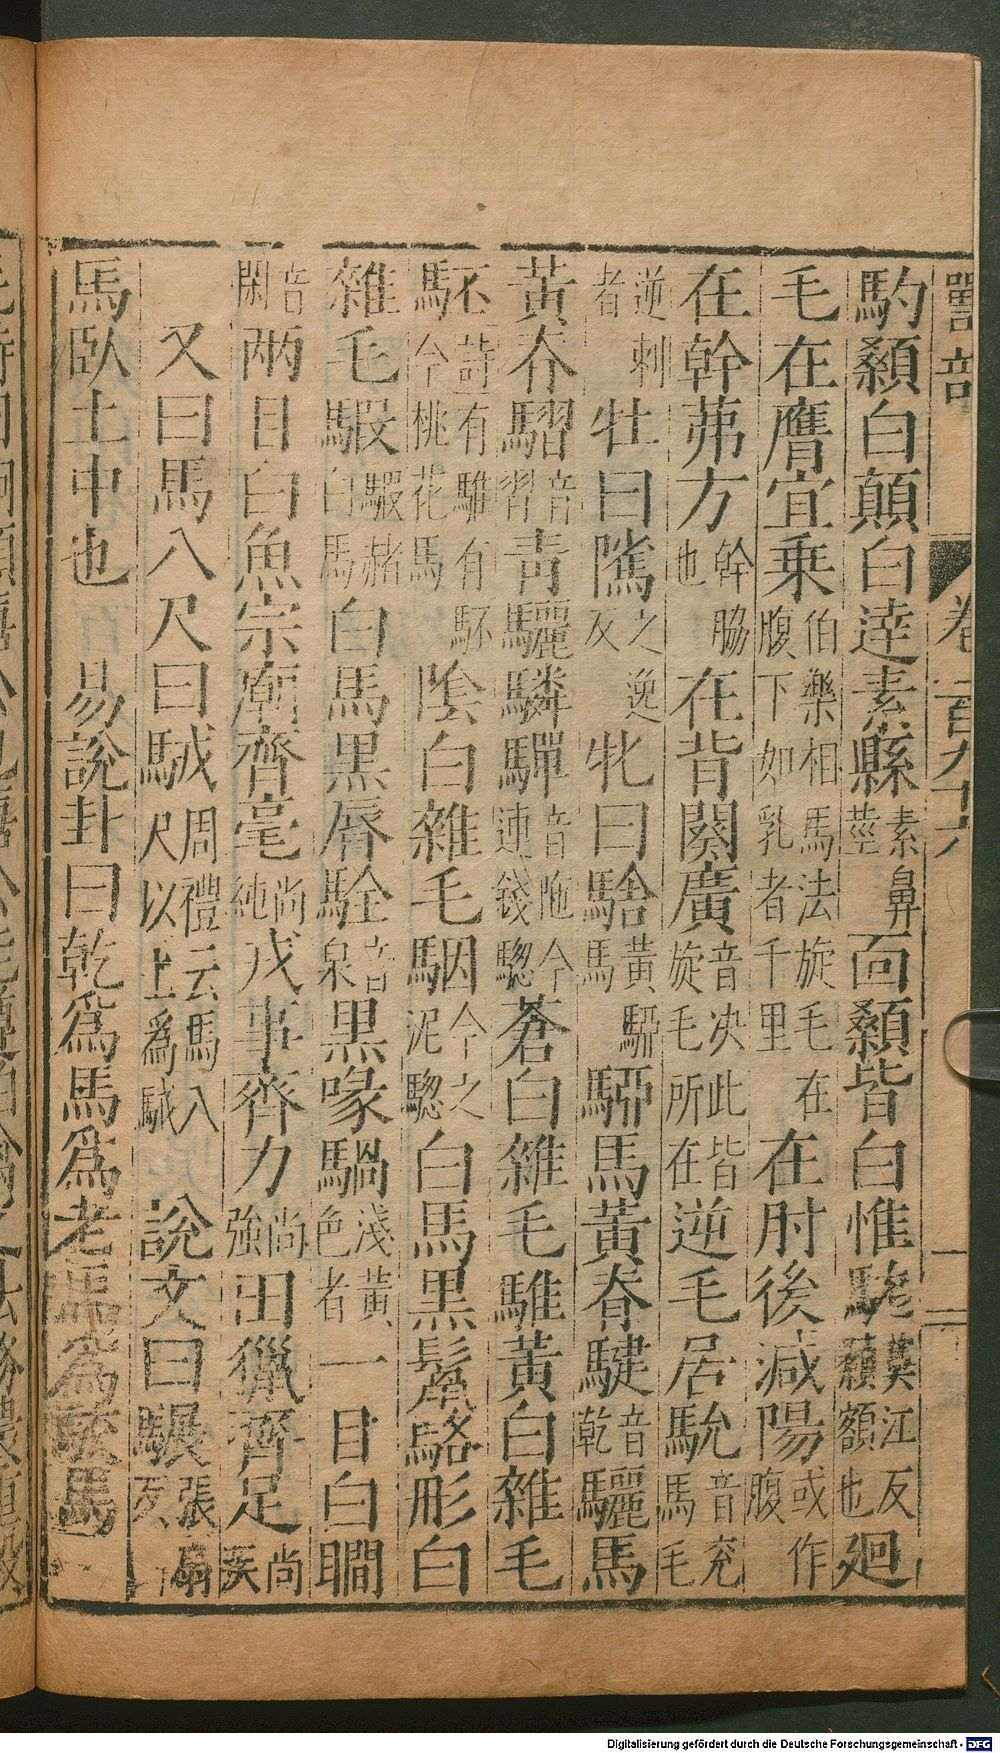 獸部 卷一百九十六
馰顙白顛白達素縣素鼻莖面顙皆白惟駹莫江反顙額也廻
毛在膺宜乗伯樂相馬法旋毛在腹下如乳者千里在肘後減陽或作腹
在幹茀方幹脇也在背闋廣音决此皆旋毛所在逆毛居馻音兖馬毛
逆刺者牡曰隲之逸反牝曰騇黃騲馬馬黃脊騝音乾驪馬
黃脊騽音習青驪驎驒音陁連錢今騘蒼白雜毛騅黃白雜毛
駓詩有騅有駓今桃花馬陰白雜毛駰今之泥騘白馬黑鬛駱彤白
雜毛騢騢赭白馬白馬黑脣駩音泉黑喙騧淺黃色者一目白瞯
音閑兩目白魚宗廟齊毫尚純戎事齊力尚強田獵齊足尚疾
又曰馬八尺曰駥周禮云馬八尺以上爲駥說文曰驏張扇反
馬臥土中也 易說卦曰乾爲馬爲老馬爲馬
Digitalisierung gefördert durch die Deutsche Forschungsgemeinschaft - DFG